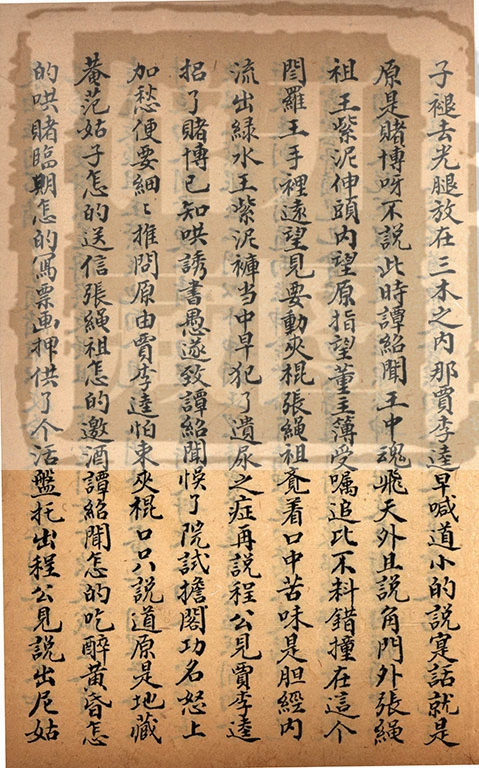 子褪去光腿放在三木之内那賈李逵早喊道小的説寔話就是
原是賭博呀不説此時譚紹聞王中魂飛天外且説角門外張繩
祖王紫泥伸頭内望原指望董主簿受嘱追比不料錯撞在這个
閆羅王手裡遠望見要動夾棍張繩祖竟着口中苦味是胆經内
流出綠水王紫泥褲当中早犯了遺尿之症再説程公見賈李逵
招了賭博已知哄誘書愚遂致譚紹聞悮了院試擔閣功名怒上
加愁便要細〻推問原由賈李逵怕東夾棍口口只説道原是地藏
菴范姑子怎的送信張繩祖怎的邀酒譚紹聞怎的吃醉黄昏怎
的哄賭臨期怎的寫票画押供了个活盤托出程公見説出尼姑